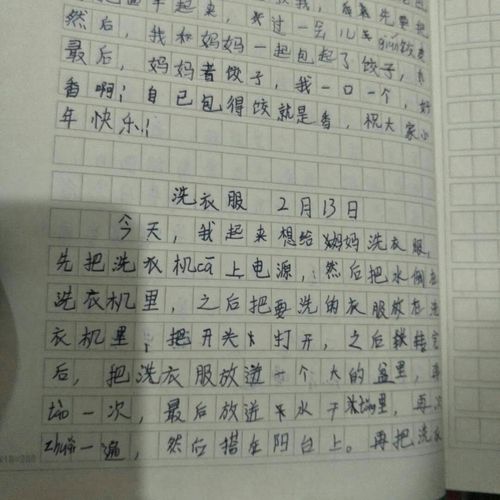 然后，我和妈妈一起包起了饺子，
最后，妈妈者饺子，我一口一个，好
香啊！自已包得饺就是香，祝大家
年快乐！
洗衣服 2月13日
今天，我起来想给妈妈洗衣服，
先把洗衣机cā上电源，然后把水倒
洗衣机里，之后把要洗的衣服放在洗
衣机里，把开关打开，之后转完
后，把洗衣服放进一个大的盆里，再
一次，最后放进水里，再
一遍，然后搭在阳台上。再把洗衣